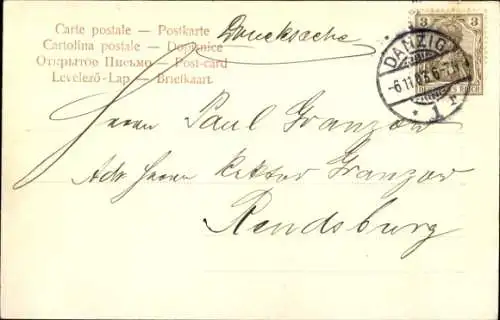 Carte postale — Postkarte
Cartolina postale — Dopisnice
Открытое Письмо — Post-card
Levelező-Lap — Briefkaart
Drucksache
3 3
DANZIG
-6.11.03.6-7N
* 1 r
Herrn Paul Granzow
Adr. Herrn Rektor Granzow
Rendsburg